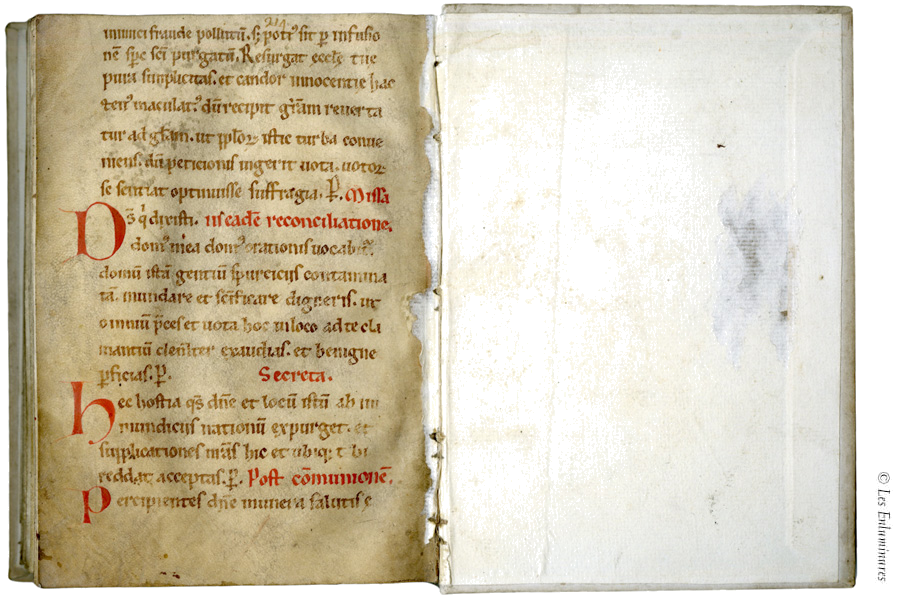 214
inimici fraude pollutũ. s; poti⁹ sit p infusio
nẽ sp̃c sc̃i purgatũ. Resurgat eccl̃e tue
pura simplicitas. et candor innocentie hac
ten⁹ maculat⁹. dũ recipit gr̃am reuerta
tur ad gl̃am. ut pp̃lor istic turba conue
niens. dũ peticionis ingerit uota. uotor
se sentiat optinuisse suffragia. P. Missa
Ds̃ q dixisti. in eadẽ reconciliatione.
dom⁹ mea dom⁹ orationis uocabit.
domũ istã gentiũ spurciciis contamina
tã. mundare et sc̃ificare digneris. ut
omniũ p̃ces et uota hoc in loco ad te cla
mantiũ clem̃ter exaudias. et benigne
pficias. P. Secreta.
Hec hostia qs̃ dñe et locũ istũ ab in
mundiciis nationũ expurget. et
supplicationes nr̃as hic et ubiq; t bi
reddat acceptas. P. Post cõmunionẽ.
Percipientes dñe munera salutis e
© Les Enluminures